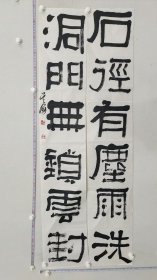 石徑有塵雨洗
洞門無鎖雲封